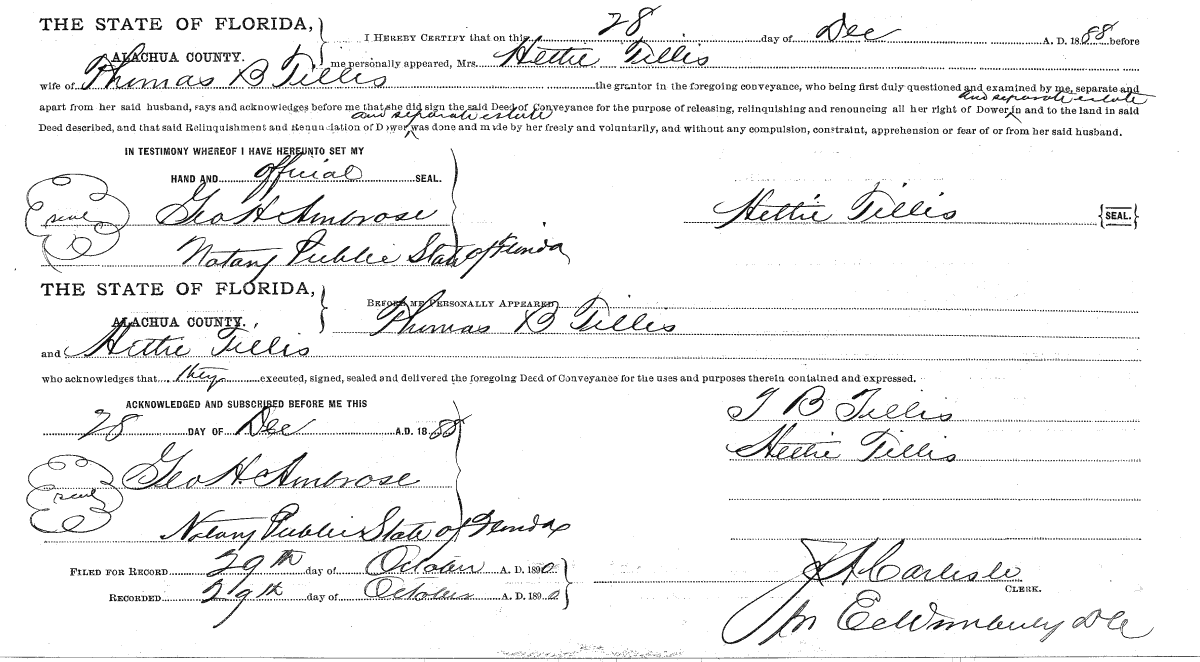 THE STATE OF FLORIDA, }
I HEREBY CERTIFY that on this 28 day of Dec A. D. 1888 before
ALACHUA COUNTY.
me personally appeared, Mrs. Hettie Tillis
wife of Thomas B Tillis the grantor in the foregoing conveyance, who being first duly questioned and examined by me, separate and
and separate estate
apart from her said husband, says and acknowledges before me that she did sign the said Deed of Conveyance for the purpose of releasing, relinquishing and renouncing all her right of Dower ^ in and to the land in said
and separate estate
Deed described, and that said Relinquishment and Renunciation of Dower ^ was done and made by her freely and voluntarily, and without any compulsion, constraint, apprehension or fear of or from her said husband.
IN TESTIMONY WHEREOF I HAVE HEREUNTO SET MY
HAND AND official SEAL.
Seal
Geo H Ambrose
Hettie Tillis {SEAL.}
Notary Public State of Florida
THE STATE OF FLORIDA, }
BEFORE ME PERSONALLY APPEARED
ALACHUA COUNTY.
Thomas B Tillis
and Hettie Tillis
who acknowledges that they executed, signed, sealed and delivered the foregoing Deed of Conveyance for the uses and purposes therein contained and expressed.
ACKNOWLEDGED AND SUBSCRIBED BEFORE ME THIS
T B Tillis
28 DAY OF Dec A.D. 1888
Hettie Tillis
Seal
Geo H. Ambrose
Notary Public State of Florida
FILED FOR RECORD 29th day of October A. D. 1890
J A Carlisle
CLERK.
RECORDED 29th day of October A. D. 1890
pr E c Wimberly D C